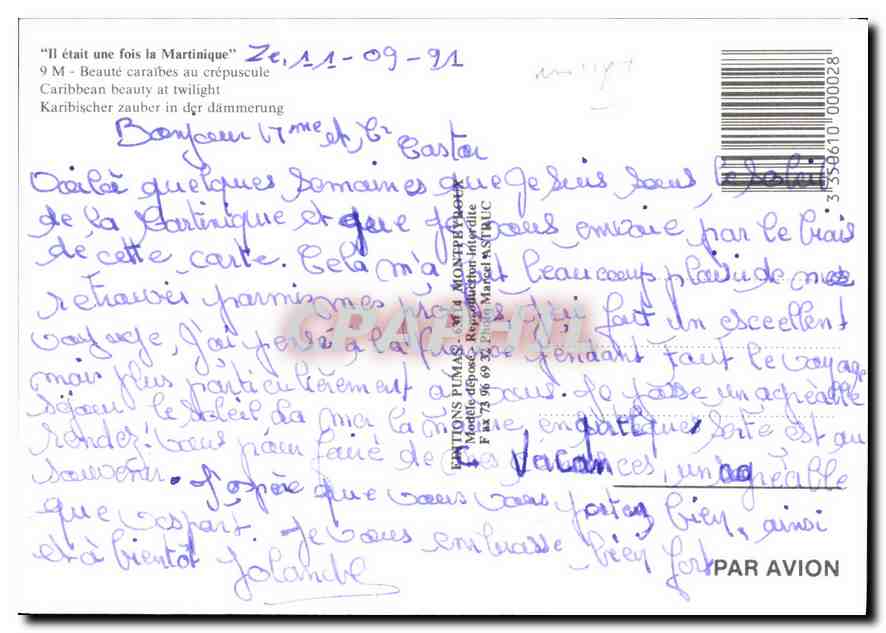 "Il était une fois la Martinique" Le, 11-09-91
9 M - Beauté caraïbes au crépuscule
Caribbean beauty at twilight
Karibischer zauber in der dämmerung
3 350610 000028
Bonjour Mme et Mr Castor
Voilà quelques semaines que je suis sous le soleil
de la Martinique et que je vous envoie par le biais
de cette carte. Cela m'a fait beaucoup plaisir de me
retrouver parmis mes proches j'ai fait un excellent
voyage, j'ai pensé à la France pendant tout le voyage
mais plus particulièrement à vous. Je passe un agréable
séjour le soleil la mer la nature en quelques sorte est au
rendez-vous pour faire de mes vacances, un agréable
souvenir. J'espère que vous vous portez bien, ainsi
que
et à bientôt je vous embrasse bien fort
Jolande
EDITIONS PUMAS - MONTPEYROUX
Modèle déposé - Reproduction interdite
Fax 73 96 69 32 Photo Marcel ASTRUC
CPAPHIL
PAR AVION